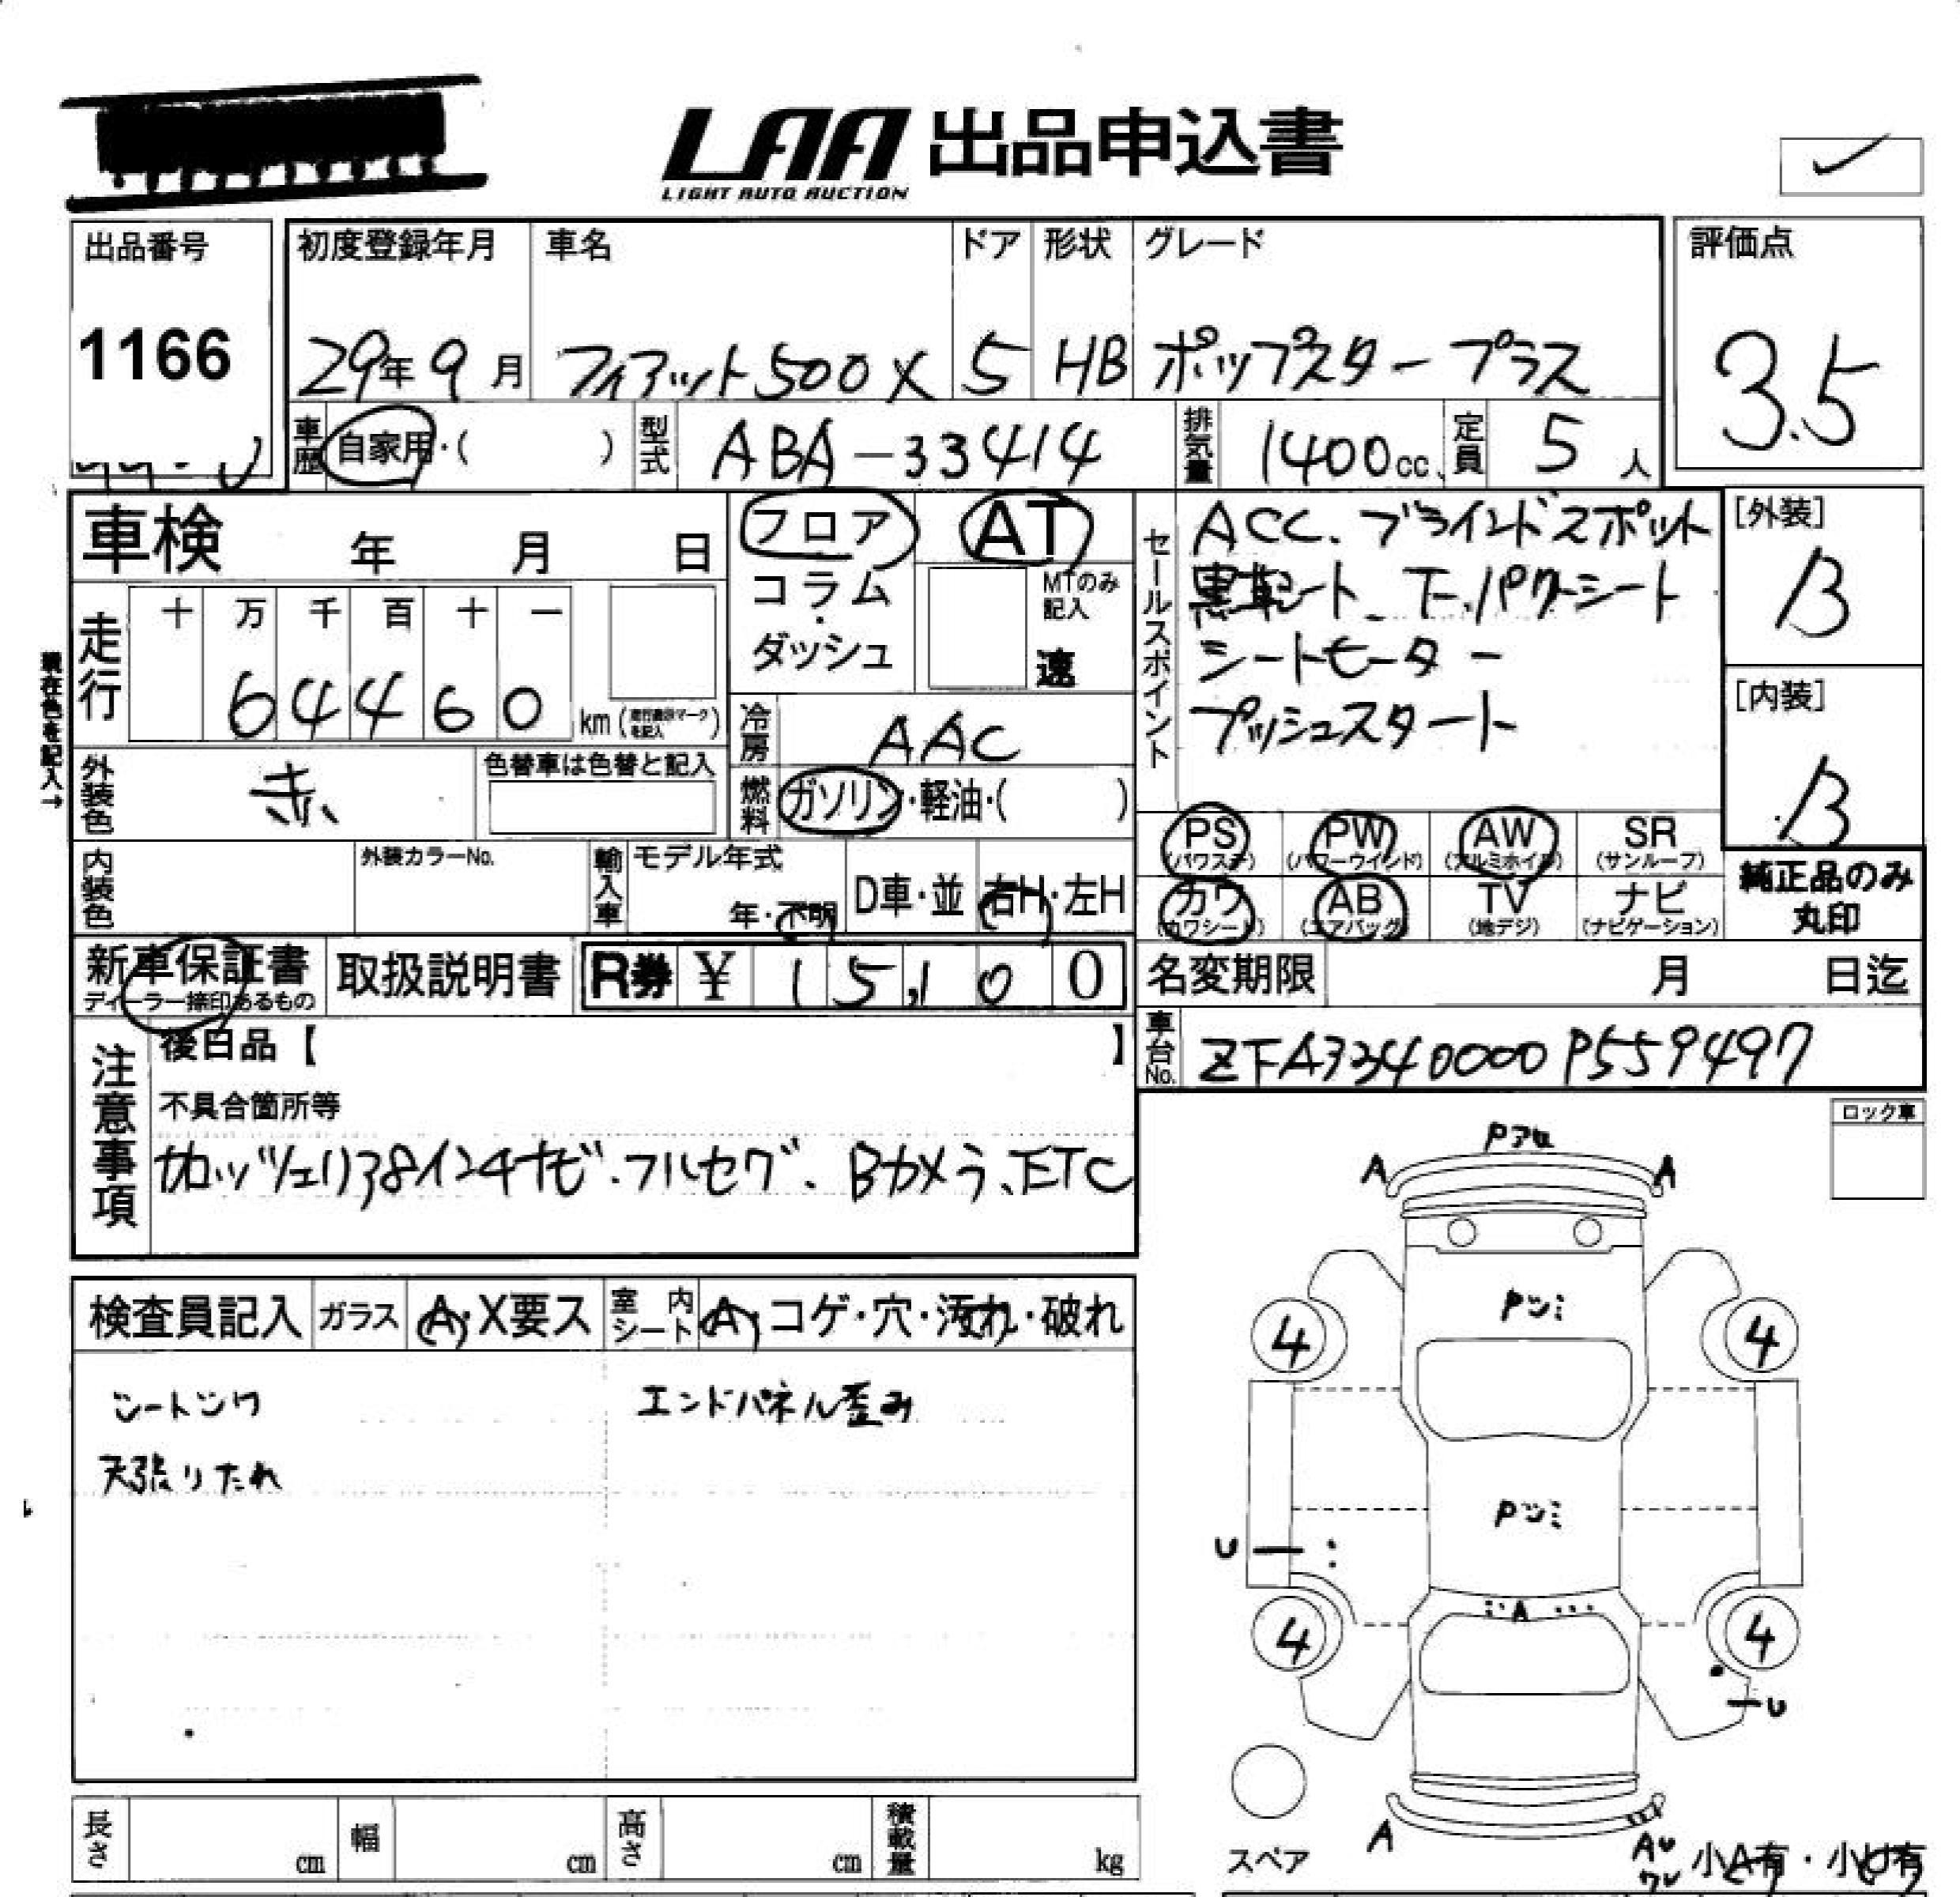 LAA 出品申込書
LIGHT AUTO AUCTION
出品番号
1166
初度登録年月
29年 9月
車名
フィアット500X
ドア
5
形状
HB
グレード
ポップスター プラス
評価点
3.5
車歴
自家用・( )
型式
ABA-33414
排気量
1400cc
定員
5人
車検 年 月 日
走行
十 万 千 百 十 一
6 4 4 6 0 km (走行距離マークを記入)
現在色を記入→
外装色
赤
色替車は色替と記入
内装色
外装カラーNo.
フロア
コラム
・
ダッシュ
AT
MTのみ
記入
速
冷房
AAC
燃料
ガソリン・軽油・( )
輸入車
モデル年式
年・不明
D車・並
右H・左H
セールスポイント
ACC、ブラインドスポット
黒革シート、下、パワーシート
シートヒーター
プッシュスタート
[外装]
B
[内装]
B
PS
(パワステ)
PW
(パワーウインド)
AW
(アルミホイル)
SR
(サンルーフ)
カワ
(カワシート)
AB
(エアバッグ)
TV
(地デジ)
ナビ
(ナビゲーション)
純正品のみ
丸印
新車保証書
ディーラー捺印あるもの
取扱説明書
R券 ¥ 15,100
名変期限 月 日迄
車台No.
ZFA3340000P559497
注意事項
後日品【 】
不具合箇所等
カロッツェリア8インチナビ、フルセグ、Bカメラ、ETC
ロック車
検査員記入
ガラス
A・X要ス
室内シート
A・コゲ・穴・汚れ・破れ
シートシワ
エンドパネル歪み
天張りたれ
Pアロ
A A
Pツミ
4 4
Pツミ
U
A
4 4
U
スペア
A
AU
ワレ
小A有・小U有
長さ cm
幅 cm
高さ cm
積載量 kg